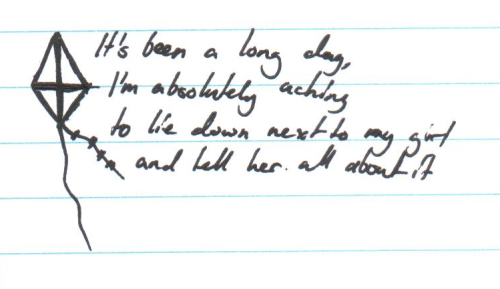 It's been a long day,
I'm absolutely aching
to lie down next to my girl
and tell her all about it